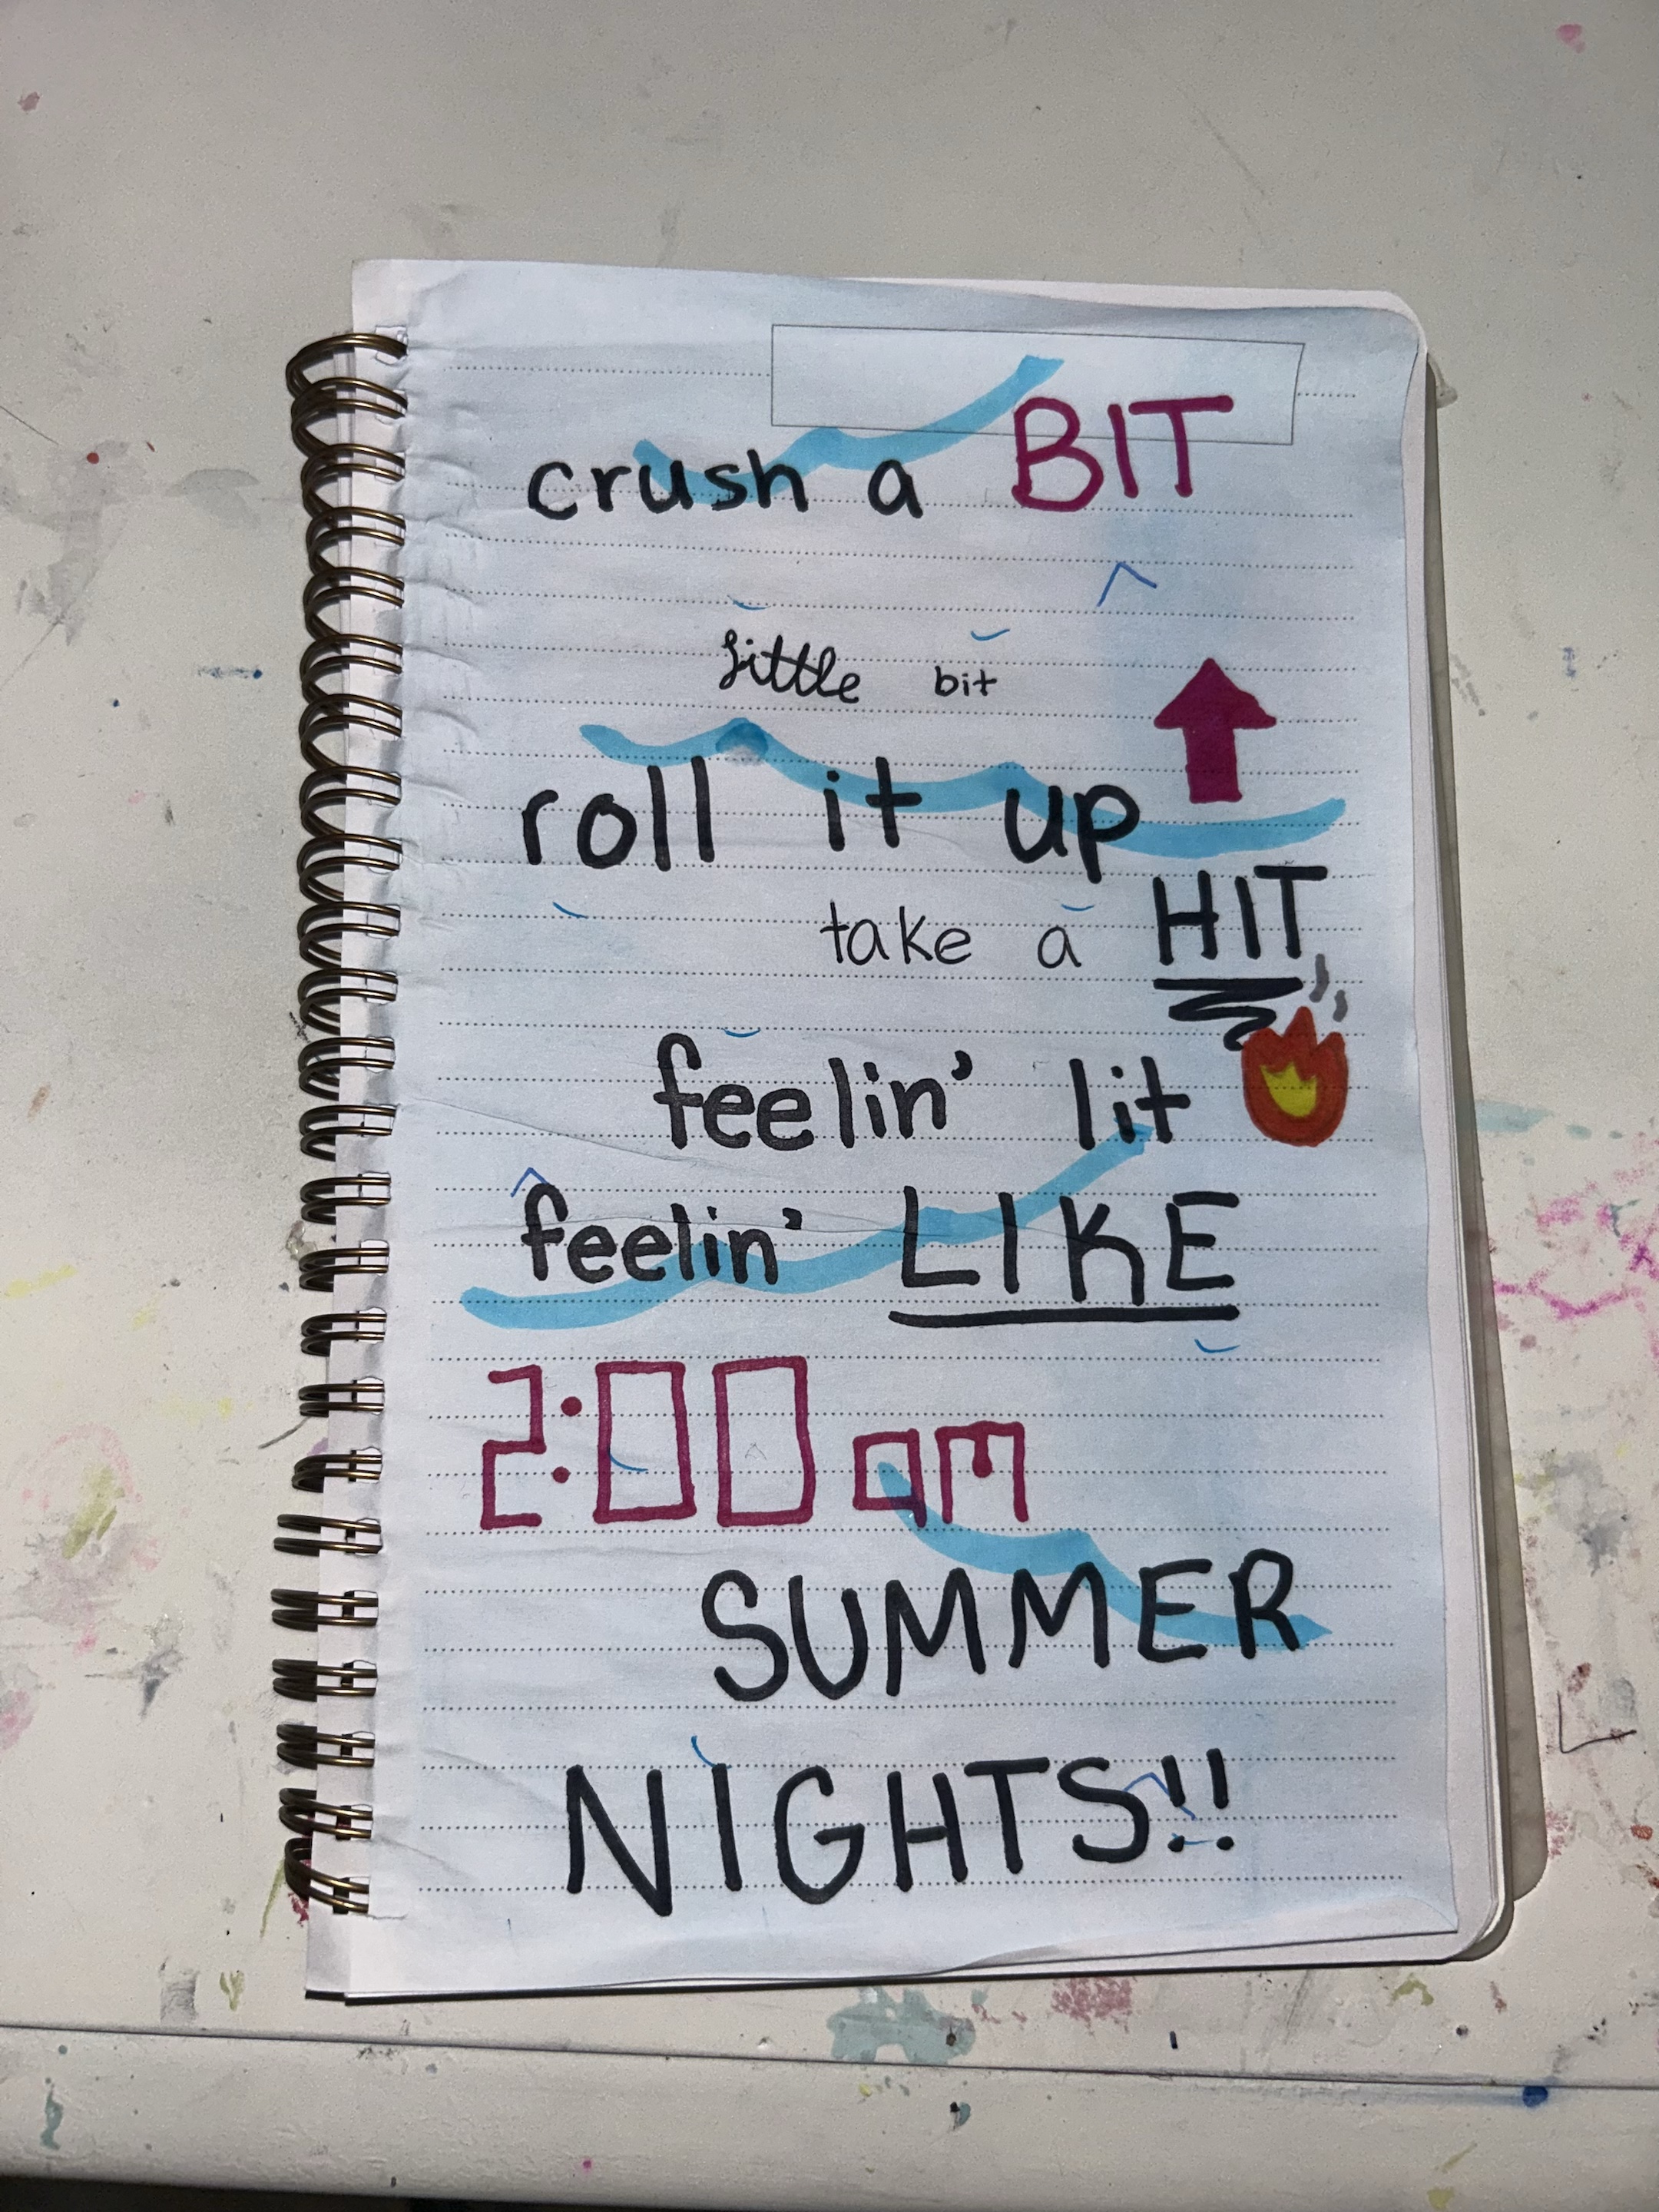 crush a BIT
little bit
roll it up
take a HIT
feelin' lit
feelin' LIKE
2:00 am
SUMMER
NIGHTS!!